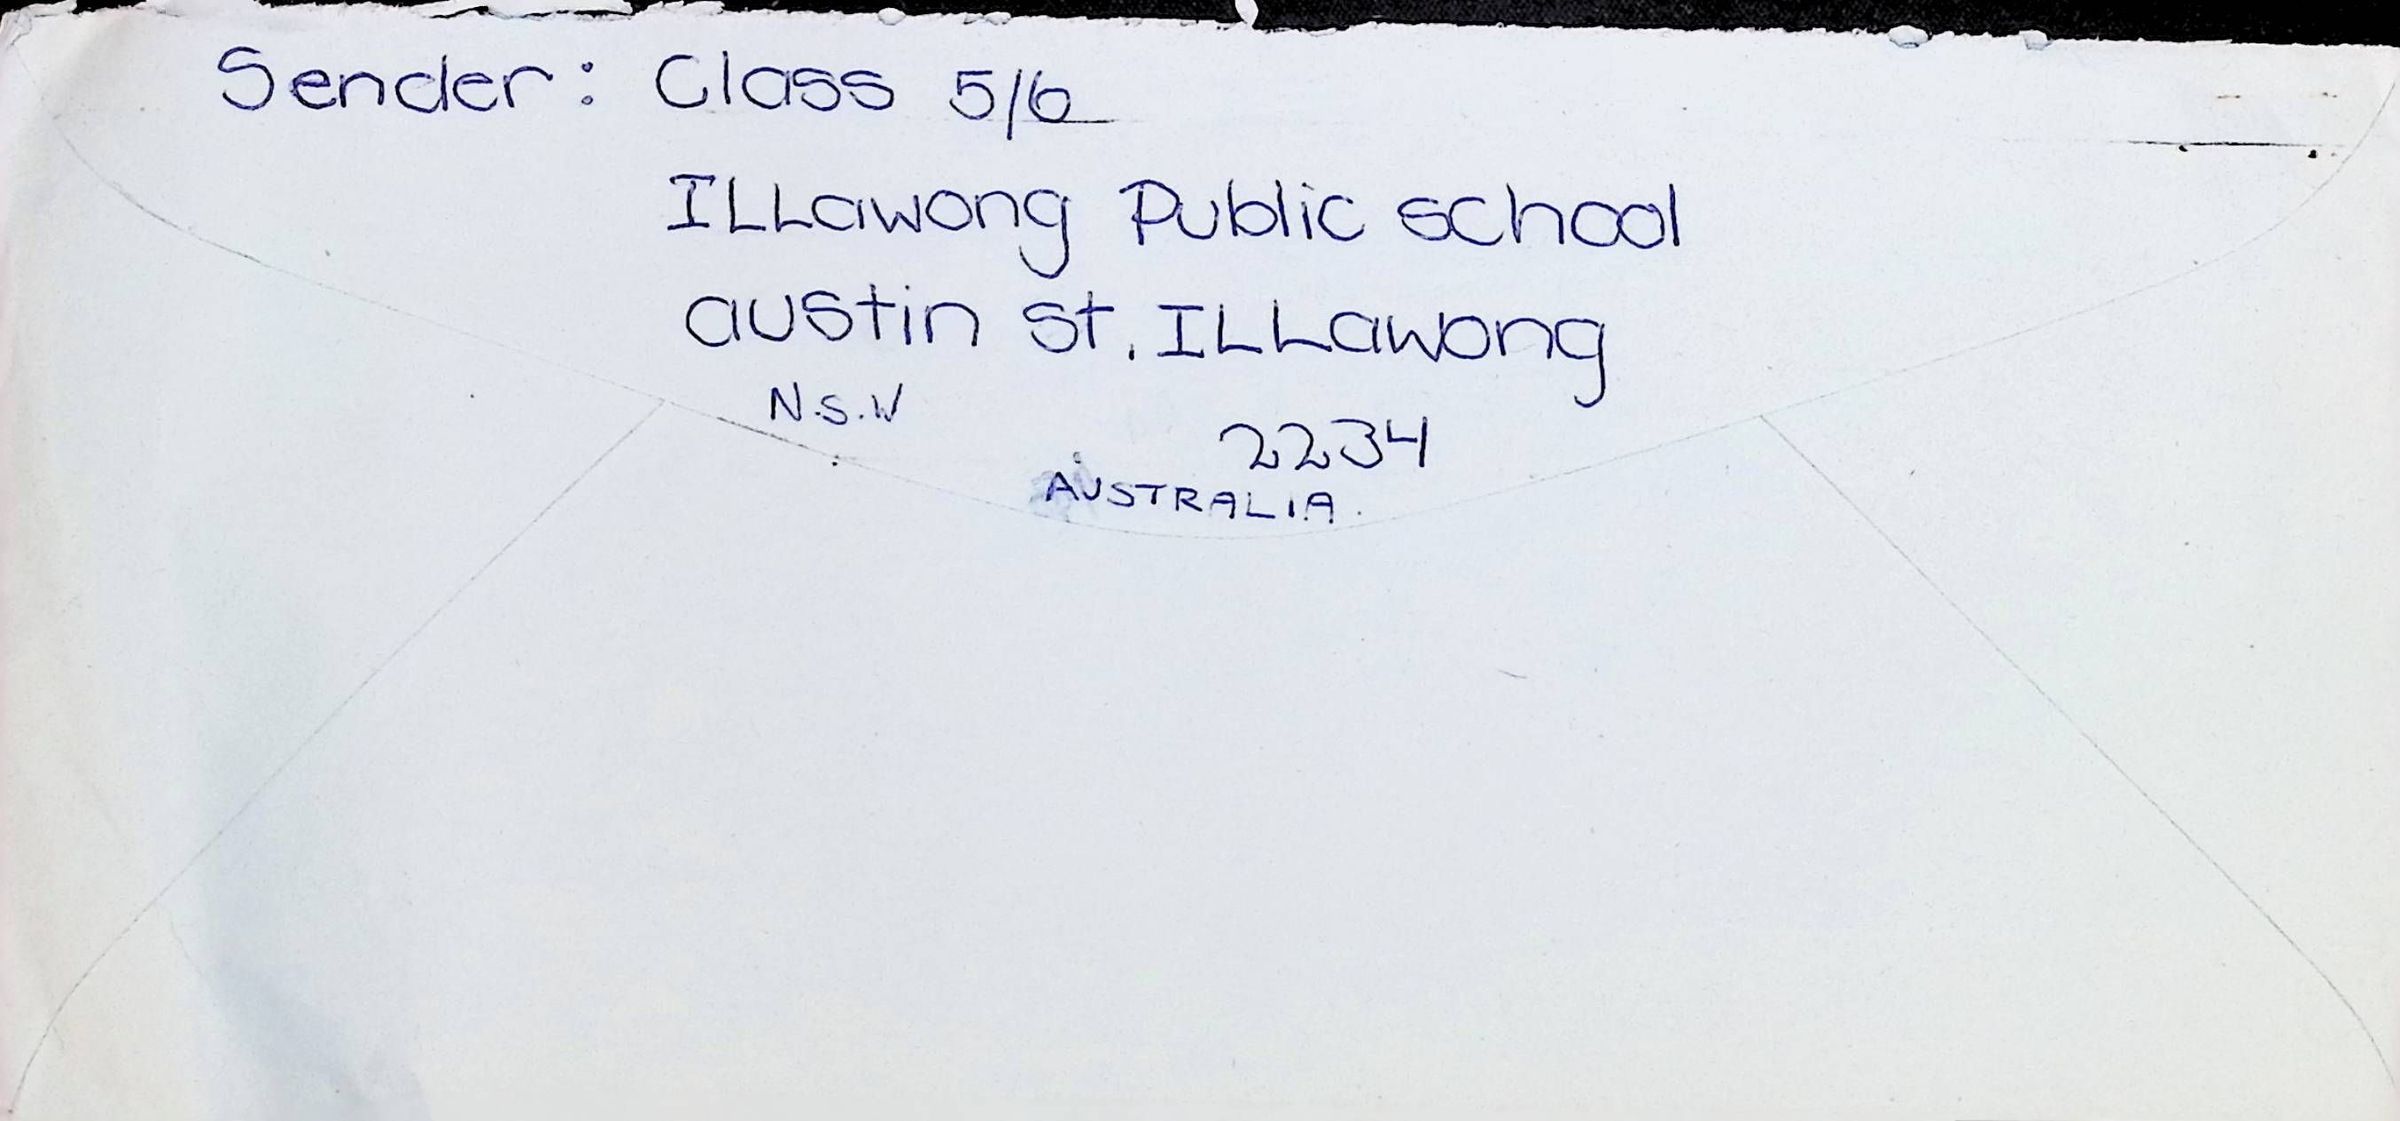 Sender: Class 5/6
ILLawong Public school
austin st. ILLawong
N.S.W
2234
AUSTRALIA.